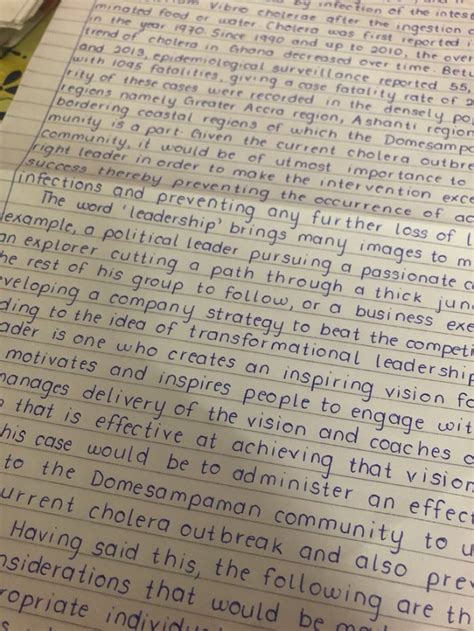 Vibrio cholerae after the infection of the intes
minated food or water. Cholera was first reported i
in the year 1970. Since 1990 and up to 2010, the over
trend of cholera in Ghana decreased over time. Bet
and 2013, epidemiological surveillance reported 55,
with 1095 fatalities, giving a case fatality rate of 2
rity of these cases were recorded in the densely po
regions namely Greater Accra region, Ashanti region
bordering coastal regions of which the Domesampa
munity is a part. Given the current cholera outbre
community, it would be of utmost importance to
right leader in order to make the intervention exc
success thereby preventing the occurrence of ac
infections and preventing any further loss of li
The word 'leadership' brings many images to m
example, a political leader pursuing a passionate c
an explorer cutting a path through a thick jun
he rest of his group to follow, or a business exe
eveloping a company strategy to beat the competi
ding to the idea of transformational leadership
ader is one who creates an inspiring vision fo
motivates and inspires people to engage wit
nanages delivery of the vision and coaches a
that is effective at achieving that vision
his case would be to administer an effect
to the Domesampaman community to u
urrent cholera outbreak and also prev
Having said this, the following are th
nsiderations that would be ma
ropriate individu